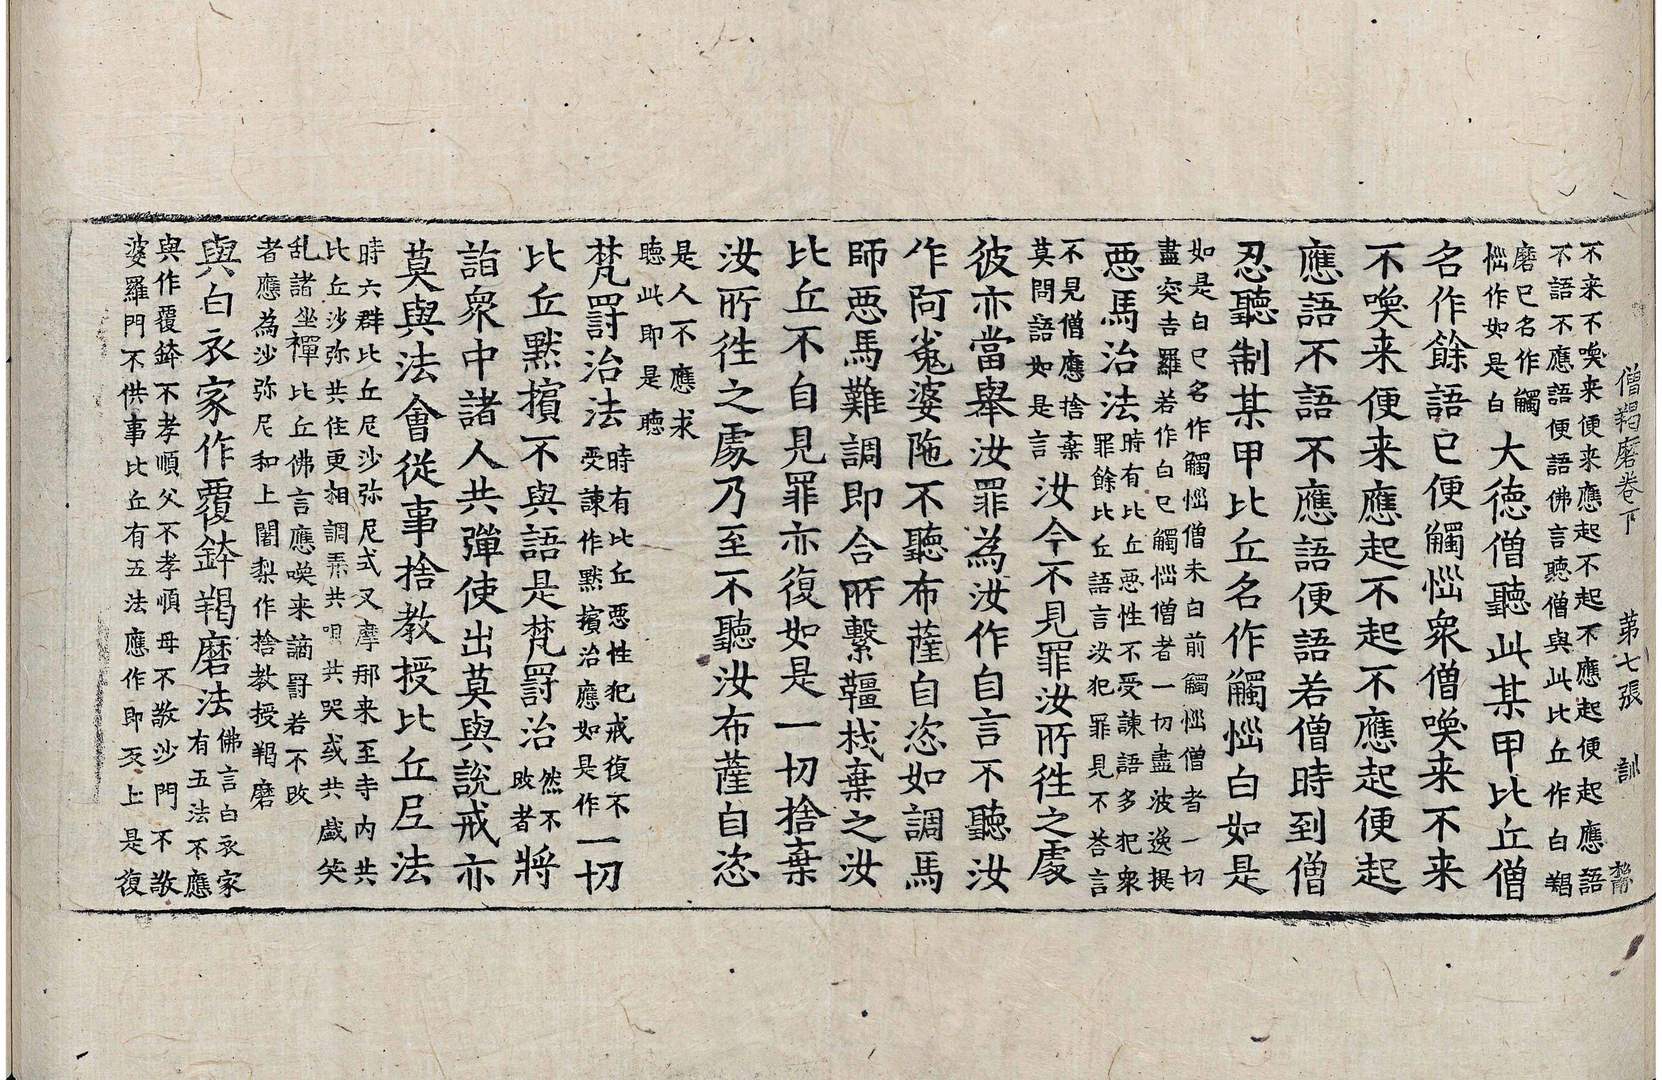 僧羯磨卷下 第七張 訓
不来不喚来便来應起不起不應起便起應語
不語不應語便語佛言聽僧與此比丘作白羯
磨已名作觸
惱作如是白
大德僧聽此某甲比丘僧
名作餘語已便觸惱衆僧喚来不来
不喚来便来應起不起不應起便起
應語不語不應語便語若僧時到僧
忍聽制某甲比丘名作觸惱白如是
如是白已名作觸惱僧未白前觸惱僧者一切
盡突吉羅若作白已觸惱僧者一切盡波逸提
惡馬治法
時有比丘惡性不受諫語多犯衆
罪餘比丘語言汝犯罪見不荅言
不見僧應捨棄
莫問語如是言
汝今不見罪汝所往之處
彼亦當舉汝罪為汝作自言不聽汝
作阿㝹婆陁不聽布薩自恣如調馬
師惡馬難調即合所繫韁杙棄之汝
比丘不自見罪亦復如是一切捨棄
汝所往之處乃至不聽汝布薩自恣
是人不應求
聽此即是聽
梵罸治法
時有比丘惡性犯戒復不
受諫作黙擯治應如是作
一切
比丘黙擯不與語是梵罸治
然不
改者
將
詣衆中諸人共彈使出莫與說戒亦
莫與法會從事捨教授比丘尼法
時六群比丘尼沙弥尼式叉摩那来至寺内共
比丘沙弥共住更相調弄共唄共哭或共戲笑
乱諸坐禪比丘佛言應喚来讁罸若不改
者應為沙弥尼和上闍梨作捨教授羯磨
與白衣家作覆鉢羯磨法
佛言白衣家
有五法不應
與作覆鉢不孝順父不孝順母不敬沙門不敬
婆羅門不供事比丘有五法應作即反上是復